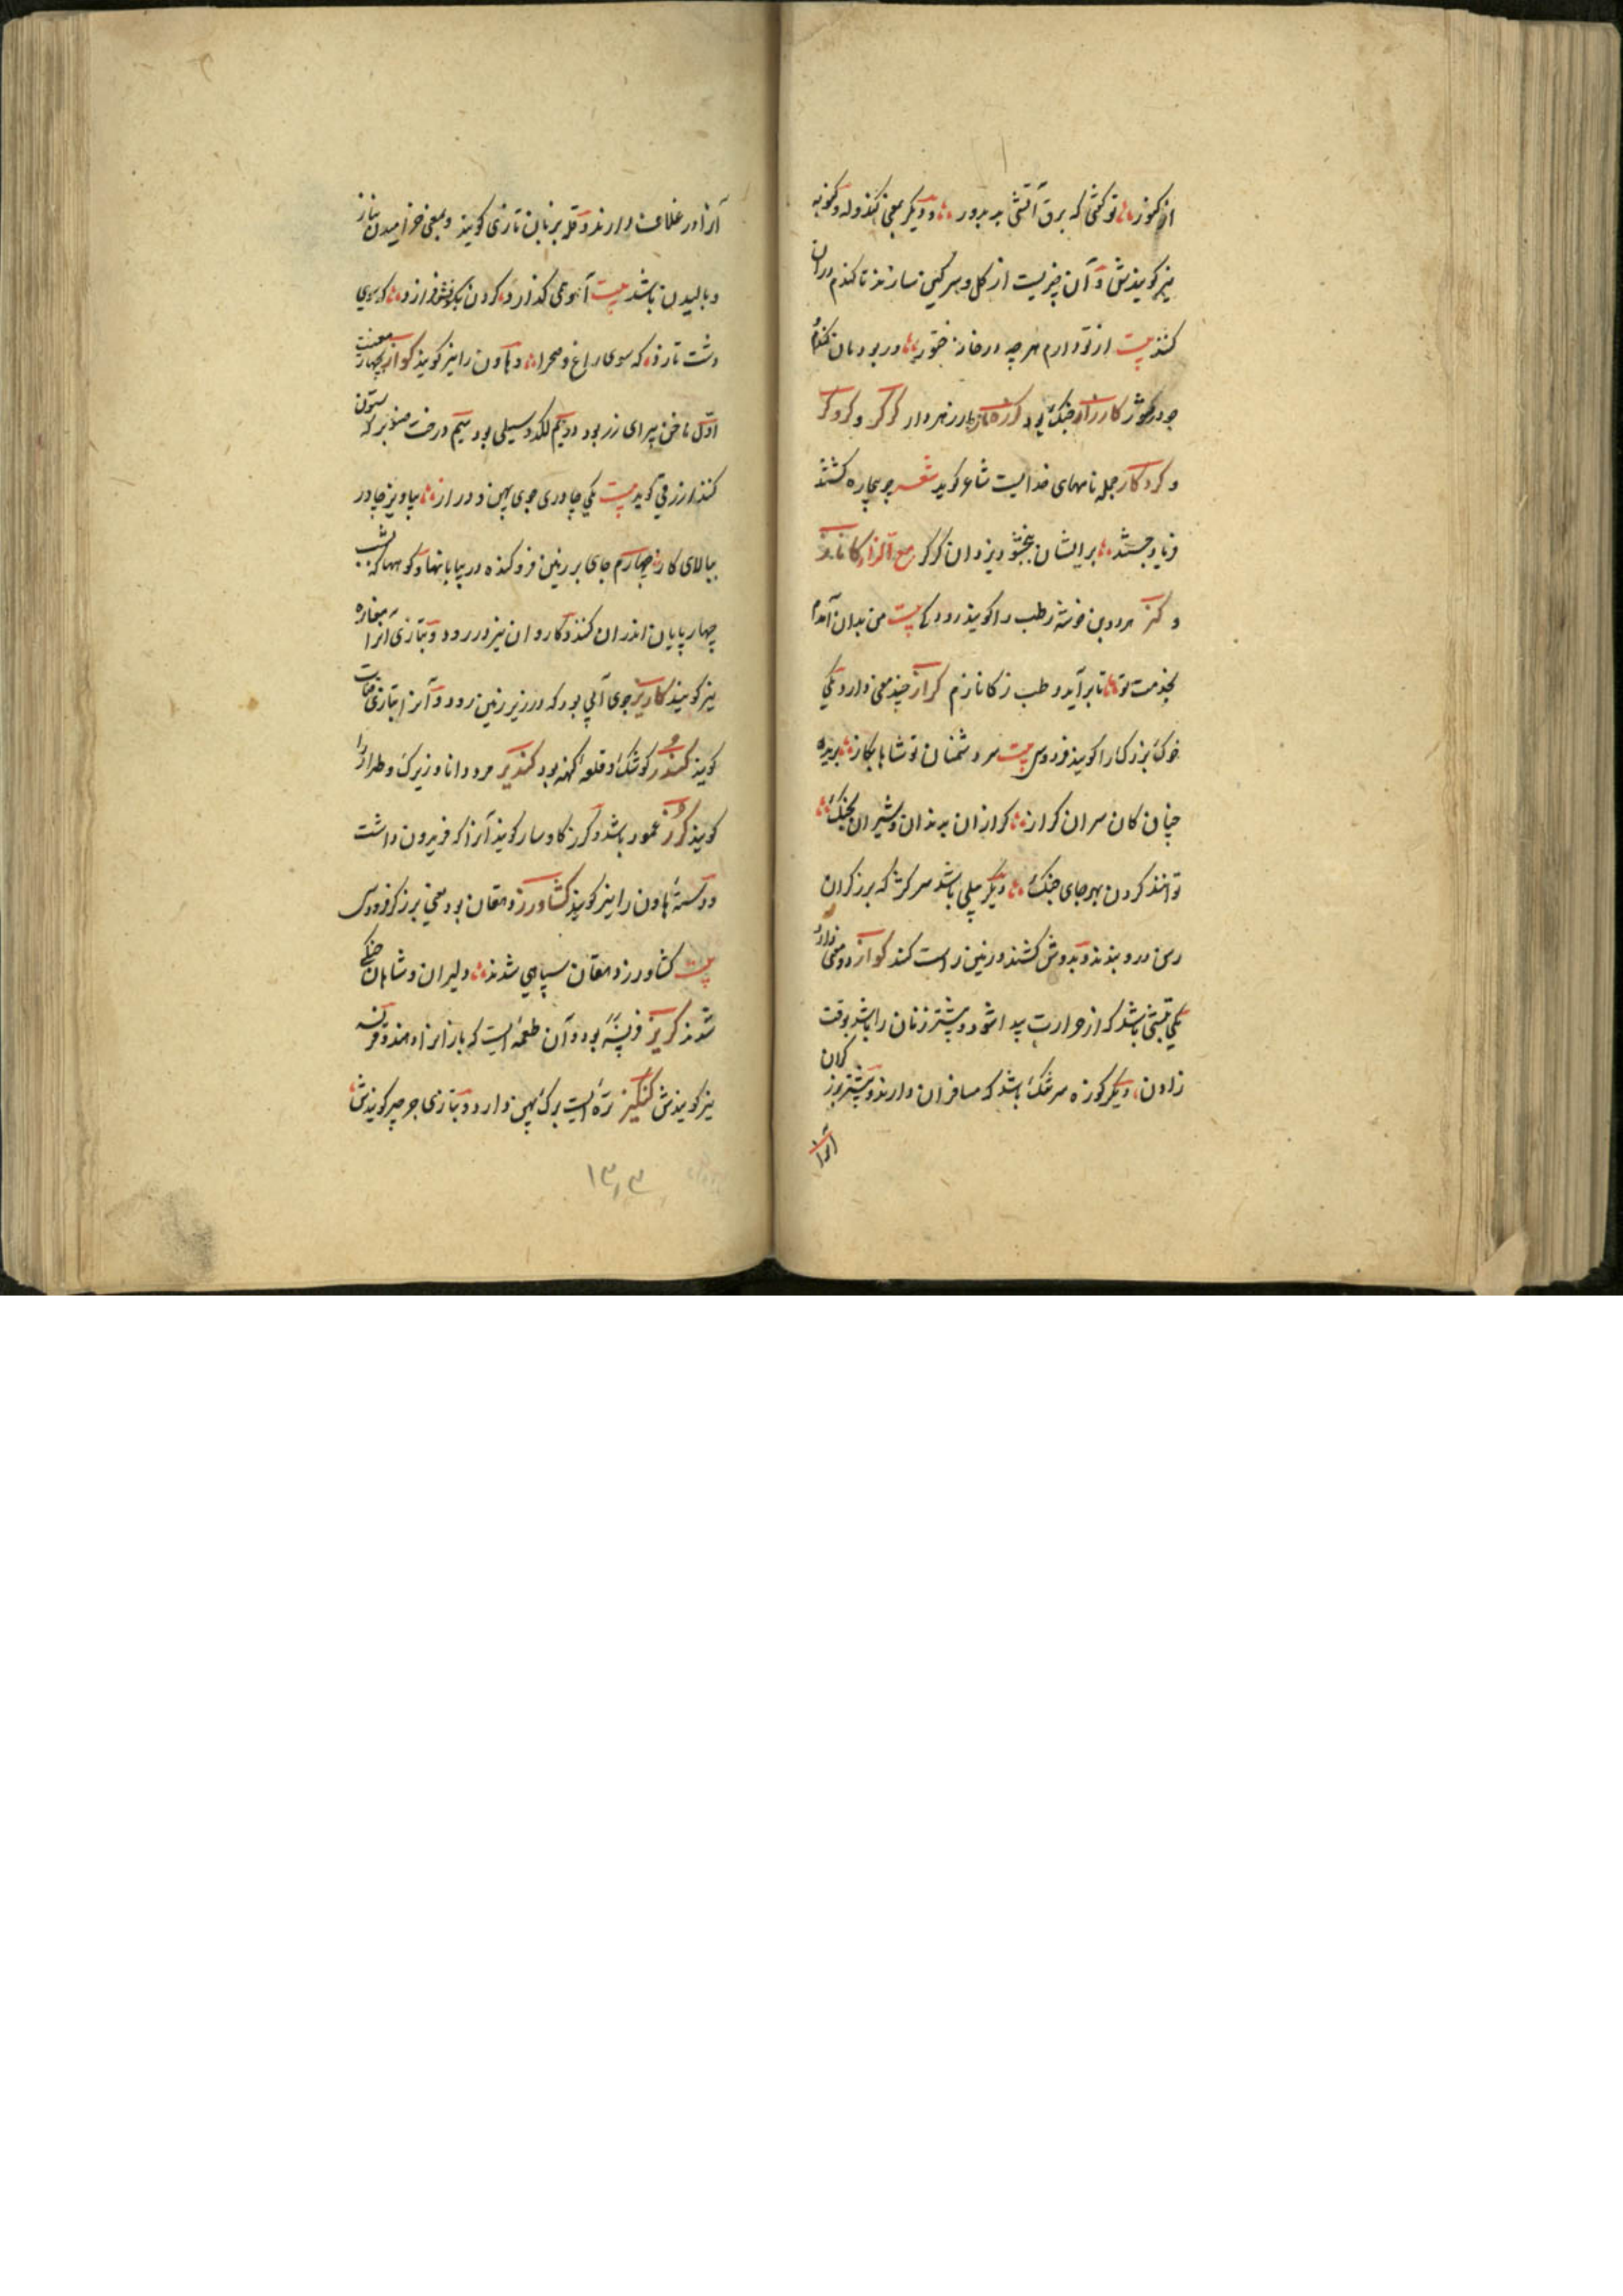 از کموژ تو کفتی که برق آتشی به پرور و دیکر بمعنی کندوله و کمونه
نیز کویندش و آن چیزیست از کل و سرکین سازند تا کندم در آن
کنند بیت از تو دارم هرچه در خانه خنور در بود نان کندم
جو در کموژ کارزار جنک بود کرزه مار زهردار کرکر و کروکر
و کردکار جمله نامهای خدایست شاعر کوید شعر چو بیچاره کشتند
فریاد جستند برایشان ببخشود یزدان کرکر مع الزاء کاناز
و کنز هر دو بن خوشه رطب را کویند رودکی بیت من بدان آمدم
بخدمت تو تا برآید رطب ز کانازم کراز چند معنی دارد یکی
خوک بزرک را کویند فردوسی بیت سر دشمنان تو شاها بکاز بریده
چنان کان سران کراز کرازان به دندان و شیران بچنک
توانند کردن بهر جای جنک دیکر بیلی باشد سر کژ که برزکران
رسن درو بندند و بدوش کشند و زمین راست کند کواز دو معنی دارد
یکی تبشی باشد که از حرارت پیدا شود و بیشتر زنان را باشد بوقت
زادن دیکر کوزه سر تنک باشد که مسافران دارند و بیشتر بزبر کران
آنرا
آنرا در غلاف دارند و قله بزبان تازی کویند و بمعنی خرامیدن بناز
و بالیدن باشد بیت آهو همی کذارد کردن بکوفش فرازد که سوی
دشت تازد که سوی راغ و صحرا و هاون را نیز کویند کواز بچهار معنیست
اول ناخن پیرای رز بود دویم لکد و سیلی بود سیم درخت صنوبر که ستون
کنند ازرقی کوید بیت یکی چادری جوی پهن و دراز بیاویز چادر
ببالای کاز چهارم جای بر زمین فرو کنده در بیابانها و کوهها که بشب
چهارپایان اندران کنند و کاروان نیز در رود و بتازی آنرا مغاره
نیز کویند کاریز جوی آبی بود که در زیر زمین رود و آنرا بتازی قنات
کویند کندز کوشک و قلعه کهنه بود کندیر مرد دانا و زیرک و طرار را
کویند کرز عمود باشد و کرز کاوسار کویند آنرا که فریدون داشت
و دسته هاون را نیز کویند کشاورز دهقان بود یعنی برزکر فردوسی
بیت کشاورز دهقان سپاهی شدند دلیران و شاهان جنکی
شدند کریز فریسنه بود و آن طعمه است که باز انرا دهند و قرنسه
نیز کویندش کنکیز تره است برک پهن دارد و بتازی جرجیر کویندش
۱۳۰۳